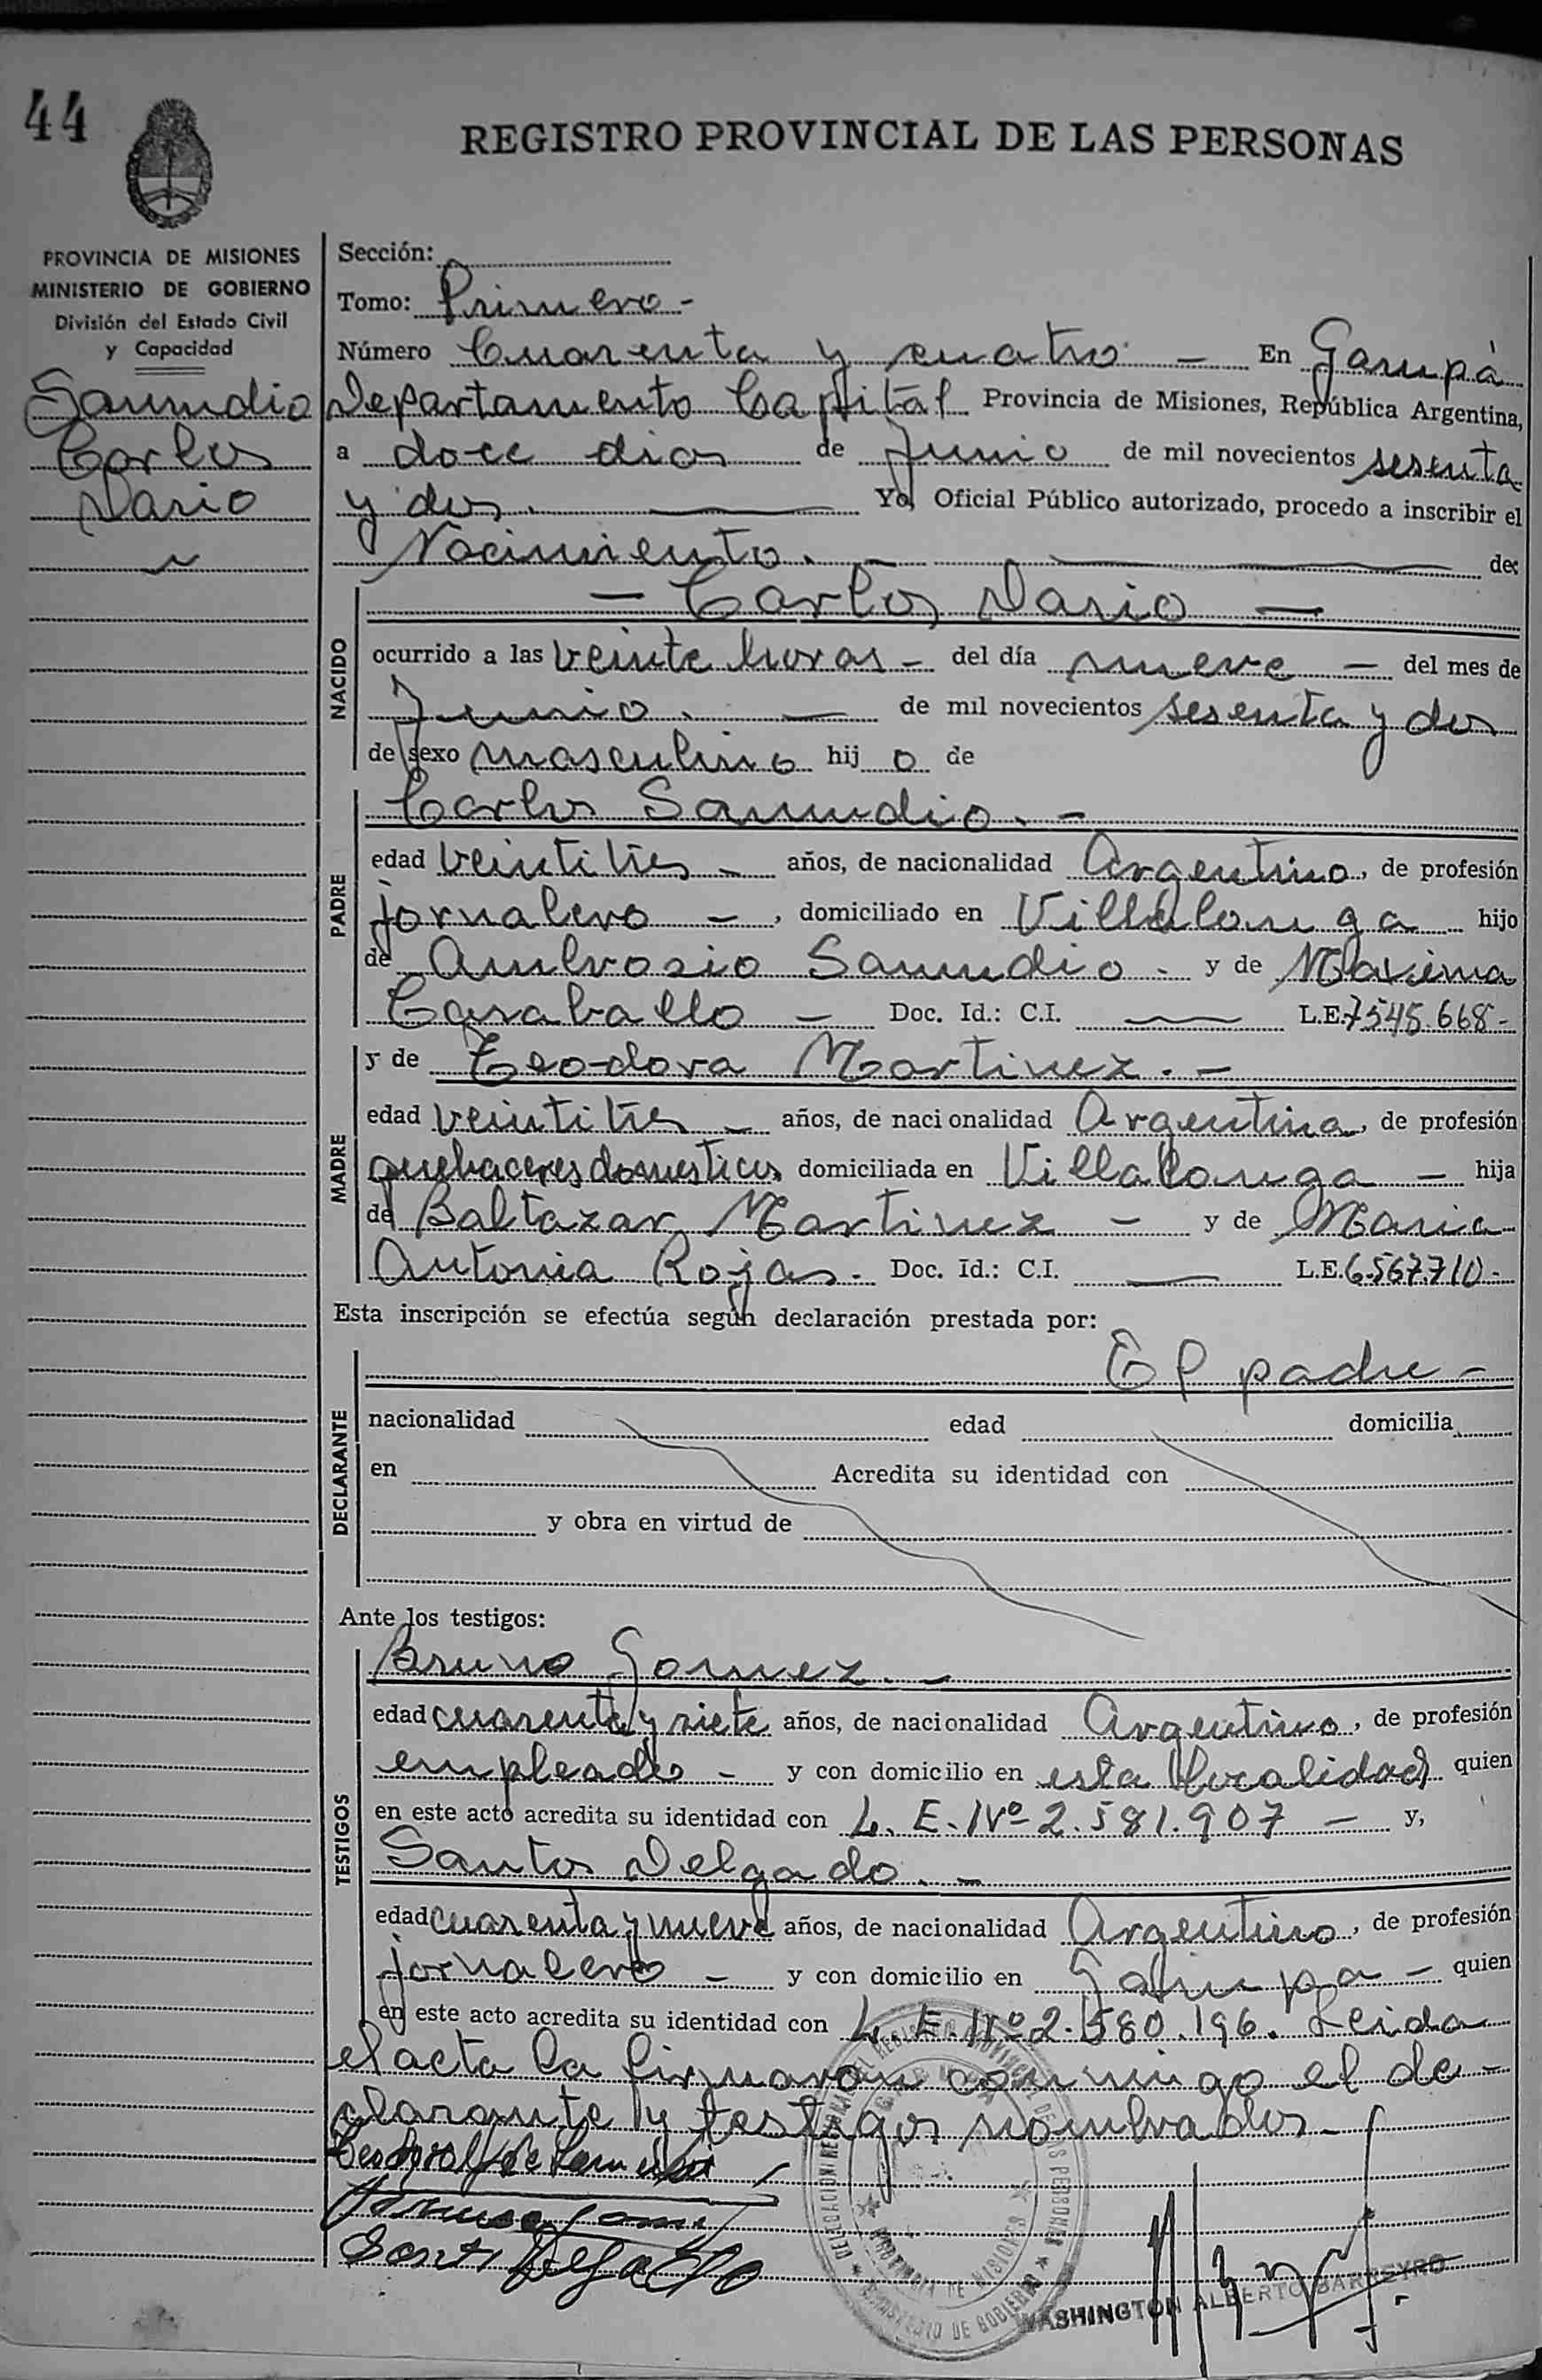 44
REGISTRO PROVINCIAL DE LAS PERSONAS
PROVINCIA DE MISIONES
MINISTERIO DE GOBIERNO
División del Estado Civil
y Capacidad
Samudio
Carlos
Dario
Sección:
Tomo: Primero-
Número Cuarenta y cuatro - En Garupá
Departamento Capital Provincia de Misiones, República Argentina,
a doce dias de Junio de mil novecientos sesenta
y dos. Yo, Oficial Público autorizado, procedo a inscribir el
Nacimiento. de:
NACIDO
- Carlos Dario -
ocurrido a las veinte horas - del día nueve - del mes de
Junio. - de mil novecientos sesenta y dos
de sexo masculino hij o de
PADRE
Carlos Samudio. -
edad veintitres - años, de nacionalidad Argentino, de profesión
jornalero -, domiciliado en Villalonga hijo
de Ambrosio Samudio - y de Maxima
Caraballo - Doc. Id.: C.I. — L.E. 7545.668-
MADRE
y de Teodora Martinez. -
edad veintitres - años, de nacionalidad Argentina, de profesión
quehaceres domesticos domiciliada en Villalonga - hija
de Baltazar Martinez - y de Maria
Antonia Rojas. Doc. Id.: C.I. — L.E. 6.567.710-
Esta inscripción se efectúa según declaración prestada por:
DECLARANTE
El padre -
nacionalidad edad domicilia
en Acredita su identidad con
y obra en virtud de
Ante los testigos:
TESTIGOS
Bruno Gomez. -
edad cuarenta y siete años, de nacionalidad Argentino, de profesión
empleado - y con domicilio en esta localidad quien
en este acto acredita su identidad con L. E. Nº 2.581.907 - y,
Santos Delgado. -
edad cuarenta y nueve años, de nacionalidad Argentino, de profesión
jornalero - y con domicilio en Garupa - quien
en este acto acredita su identidad con L. E. Nº 2.580.196. Leida
el acta la firmaron conmigo el de-
clarante y testigos nombrados.
Santos Delgado
PROVINCIA DE MISIONES
MINISTERIO DE GOBIERNO
WASHINGTON ALBERTO BARREYRO